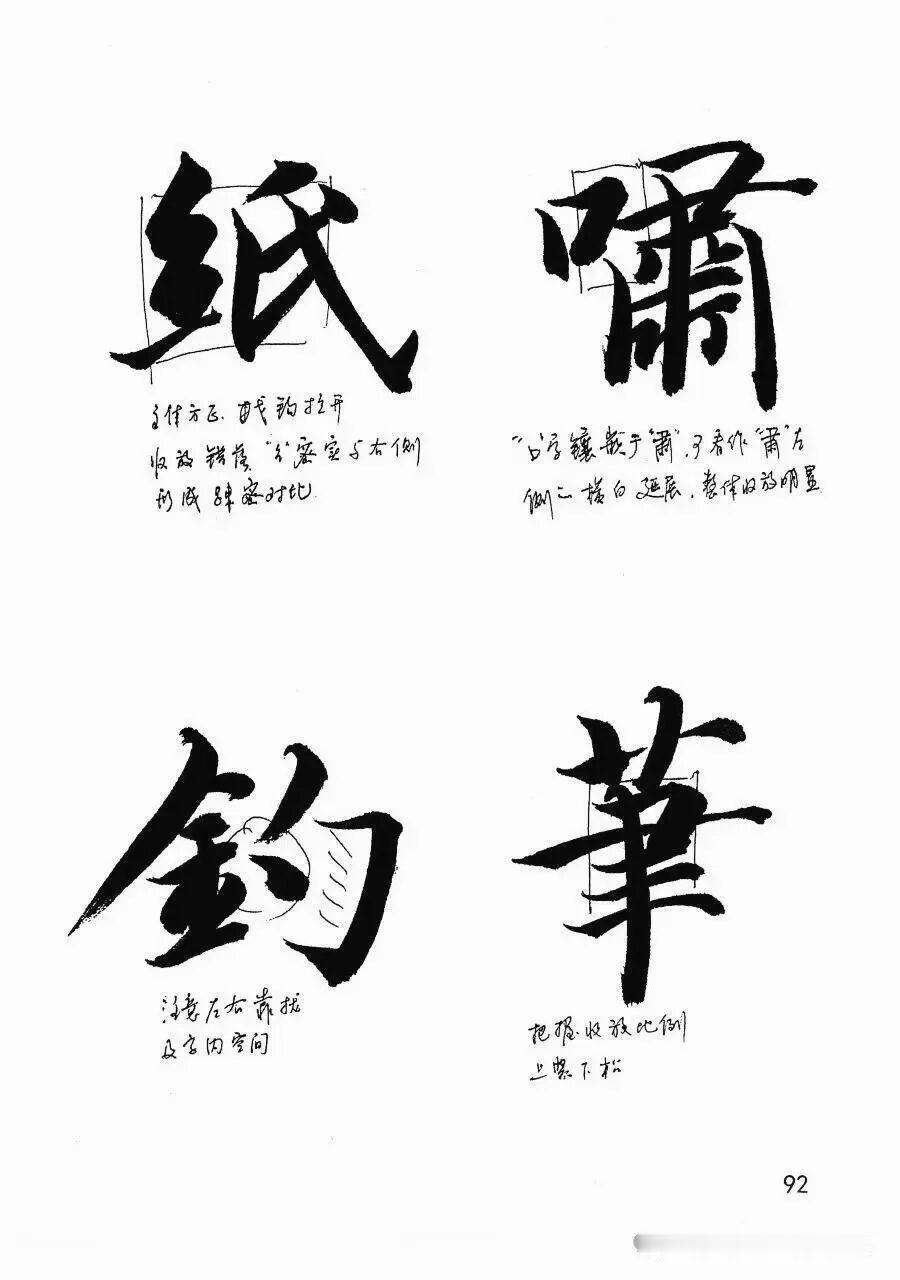 紙
主体方正、戈钩拉开
收放错落"纟"密实与右侧
形成疏密对比
嘯
"口"字镶嵌于"肅",可看作"肅"左
侧二横向延展,整体收放明显
鈞
注意左右靠拢
及字内空间
華
把握收放比例
上紧下松
92